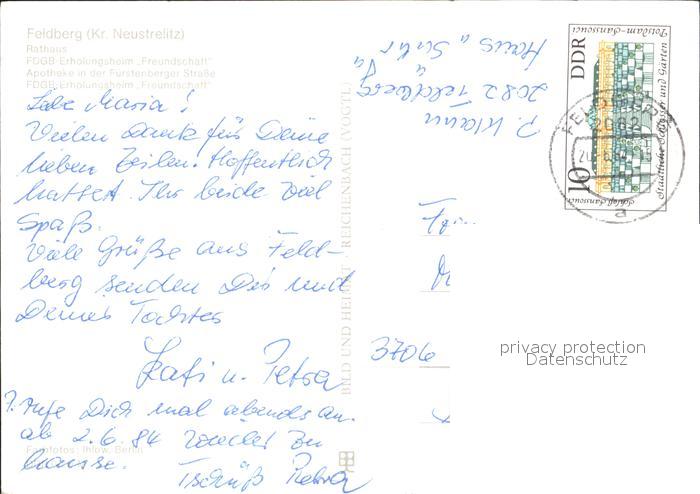 Feldberg (Kr. Neustrelitz)
Rathaus
FDGB-Erholungsheim „Freundschaft"
Apotheke in der Fürstenberger Straße
FDGB-Erholungsheim „Freundschaft"
Liebe Maria!
Vielen Dank für Deine
lieben Zeilen. Hoffentlich
hattet Ihr beide viel
Spaß.
Viele Grüße aus Feld-
berg senden Dir und
Deiner Tochter
Kati u. Petra
Rufe Dich mal abends an.
ab 2.6.84 wieder zu
Hause.
Tschüß Petra
Farbfotos: Ihlow, Berlin
BILD UND HEIMAT REICHENBACH (VOGTL)
P. Klann
2082 Feldberg
Haus
3706
DDR
10
Potsdam-Sanssouci
Staatliche Schlösser und Gärten
Schloß Sanssouci
FELDBERG
2082
a
privacy protection
Datenschutz